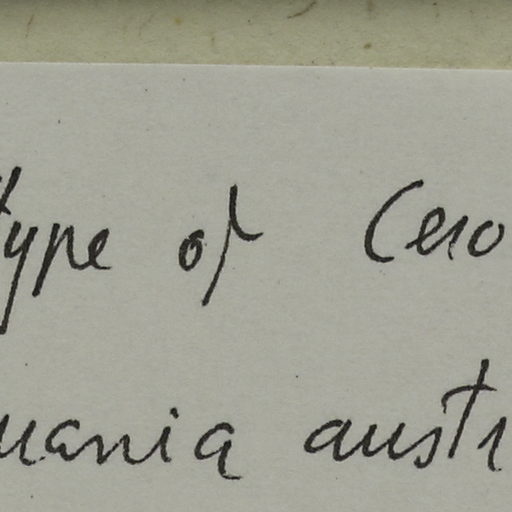 type of Cero
uania austr